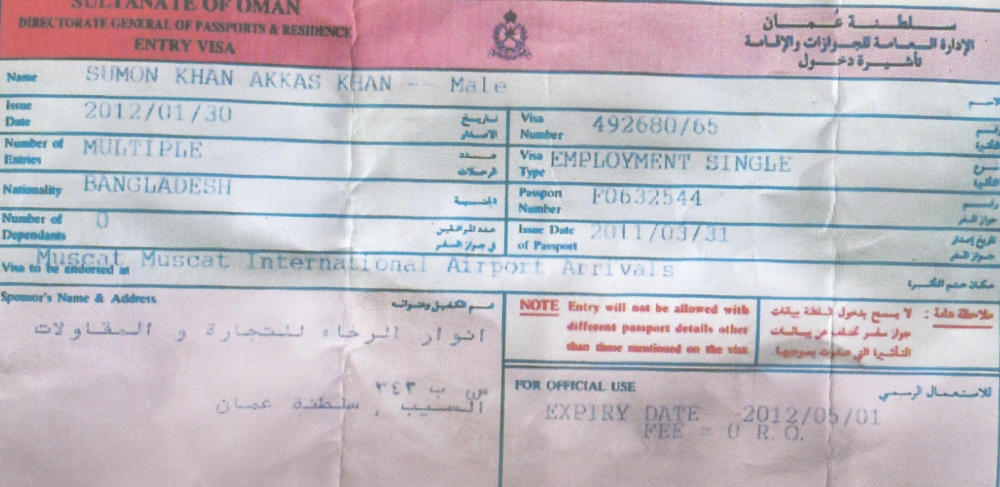 SULTANATE OF OMAN
DIRECTORATE GENERAL OF PASSPORTS & RESIDENCE
ENTRY VISA
سلطنة عُمان
الإدارة العامة للجوازات والإقامة
تأشيرة دخول
Name SUMON KHAN AKKAS KHAN -- Male
Issue Date 2012/01/30 تاريخ الاصدار
Visa Number 492680/65
Number of Entries MULTIPLE عدد الرحلات
Visa Type EMPLOYMENT SINGLE
Nationality BANGLADESH الجنسية
Passport Number F0632544 رقم جواز السفر
Number of Dependants 0 عدد المرافقين في جواز السفر
Issue Date of Passport 2011/03/31 تاريخ إصدار جواز السفر
Visa to be endorsed at Muscat Muscat International Airport Arrivals مكان ختم التأشيرة
Sponsor's Name & Address اسم الكفيل وعنوانه
انوار الرخاء للتجارة و المقاولات
ص ب ٣٤٣
السيب , سلطنة عمان
NOTE Entry will not be allowed with
different passport details other
than those mentioned on the visa
ملاحظة هامة : لا يسمح بدخول السلطنة ببيانات
جواز سفر تختلف عن بيانات
التأشيرة التي صدرت بموجبها
FOR OFFICIAL USE للاستعمال الرسمي
EXPIRY DATE 2012/05/01
FEE = 0 R.O.